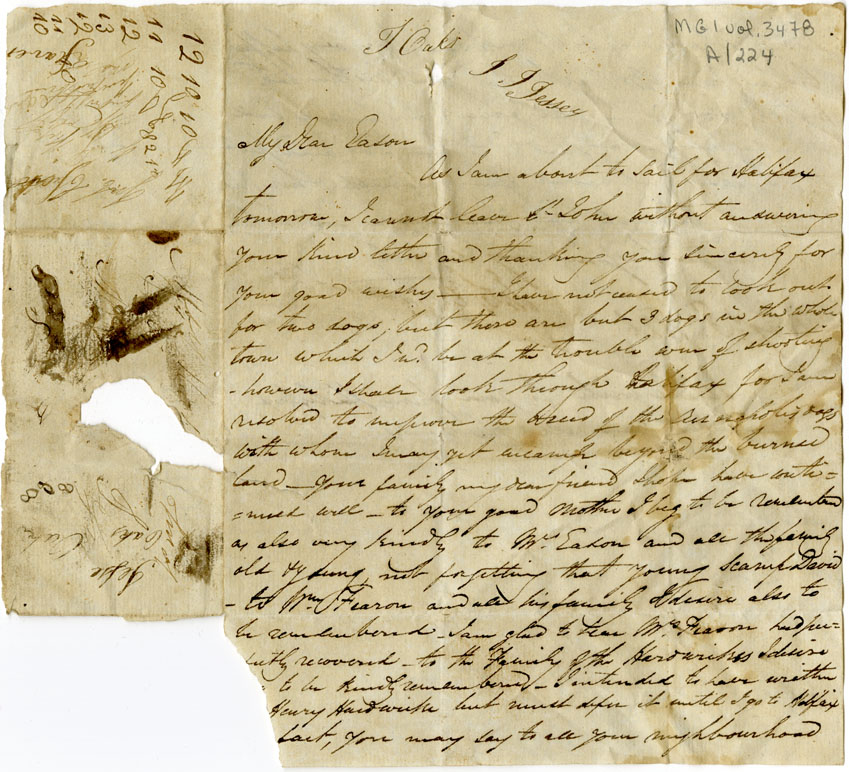 MG 1 vol. 3478
A/224
T Oaks
J J Jessey
My Dear Eason
As I am about to sail for Halifax
tomorrow, I cannot leave St John without answering
your kind letter and thanking you sincerely for
your good wishes — I have not ceased to look out
for two dogs, but there are but 3 dogs in the whole
town which I wd be at the trouble even of shooting
- however I shall look through Halifax for I am
resolved to improve the breed of the Annapolis dogs
with whom I may yet encamp beyond the burned
land — Your family my dear friend I hope have conti=
=nued well — to your good Mother I beg to be remembered
as also very kindly to Mrs Eason and all the family
old & young not forgetting that young Scamp David
- to Wm Fearon and all his family I desire also to
be remembered - I am glad to hear Mrs Fearon had per=
fectly recovered - to the Family of the Hardwickes I desire
to be kindly remembered - I intended to have written
Henry Hardwicke but must defer it until I go to Halifax
fact, you may say to all your neighbourhood
12 10 10
11 10
12
13
Jesse
Oaks